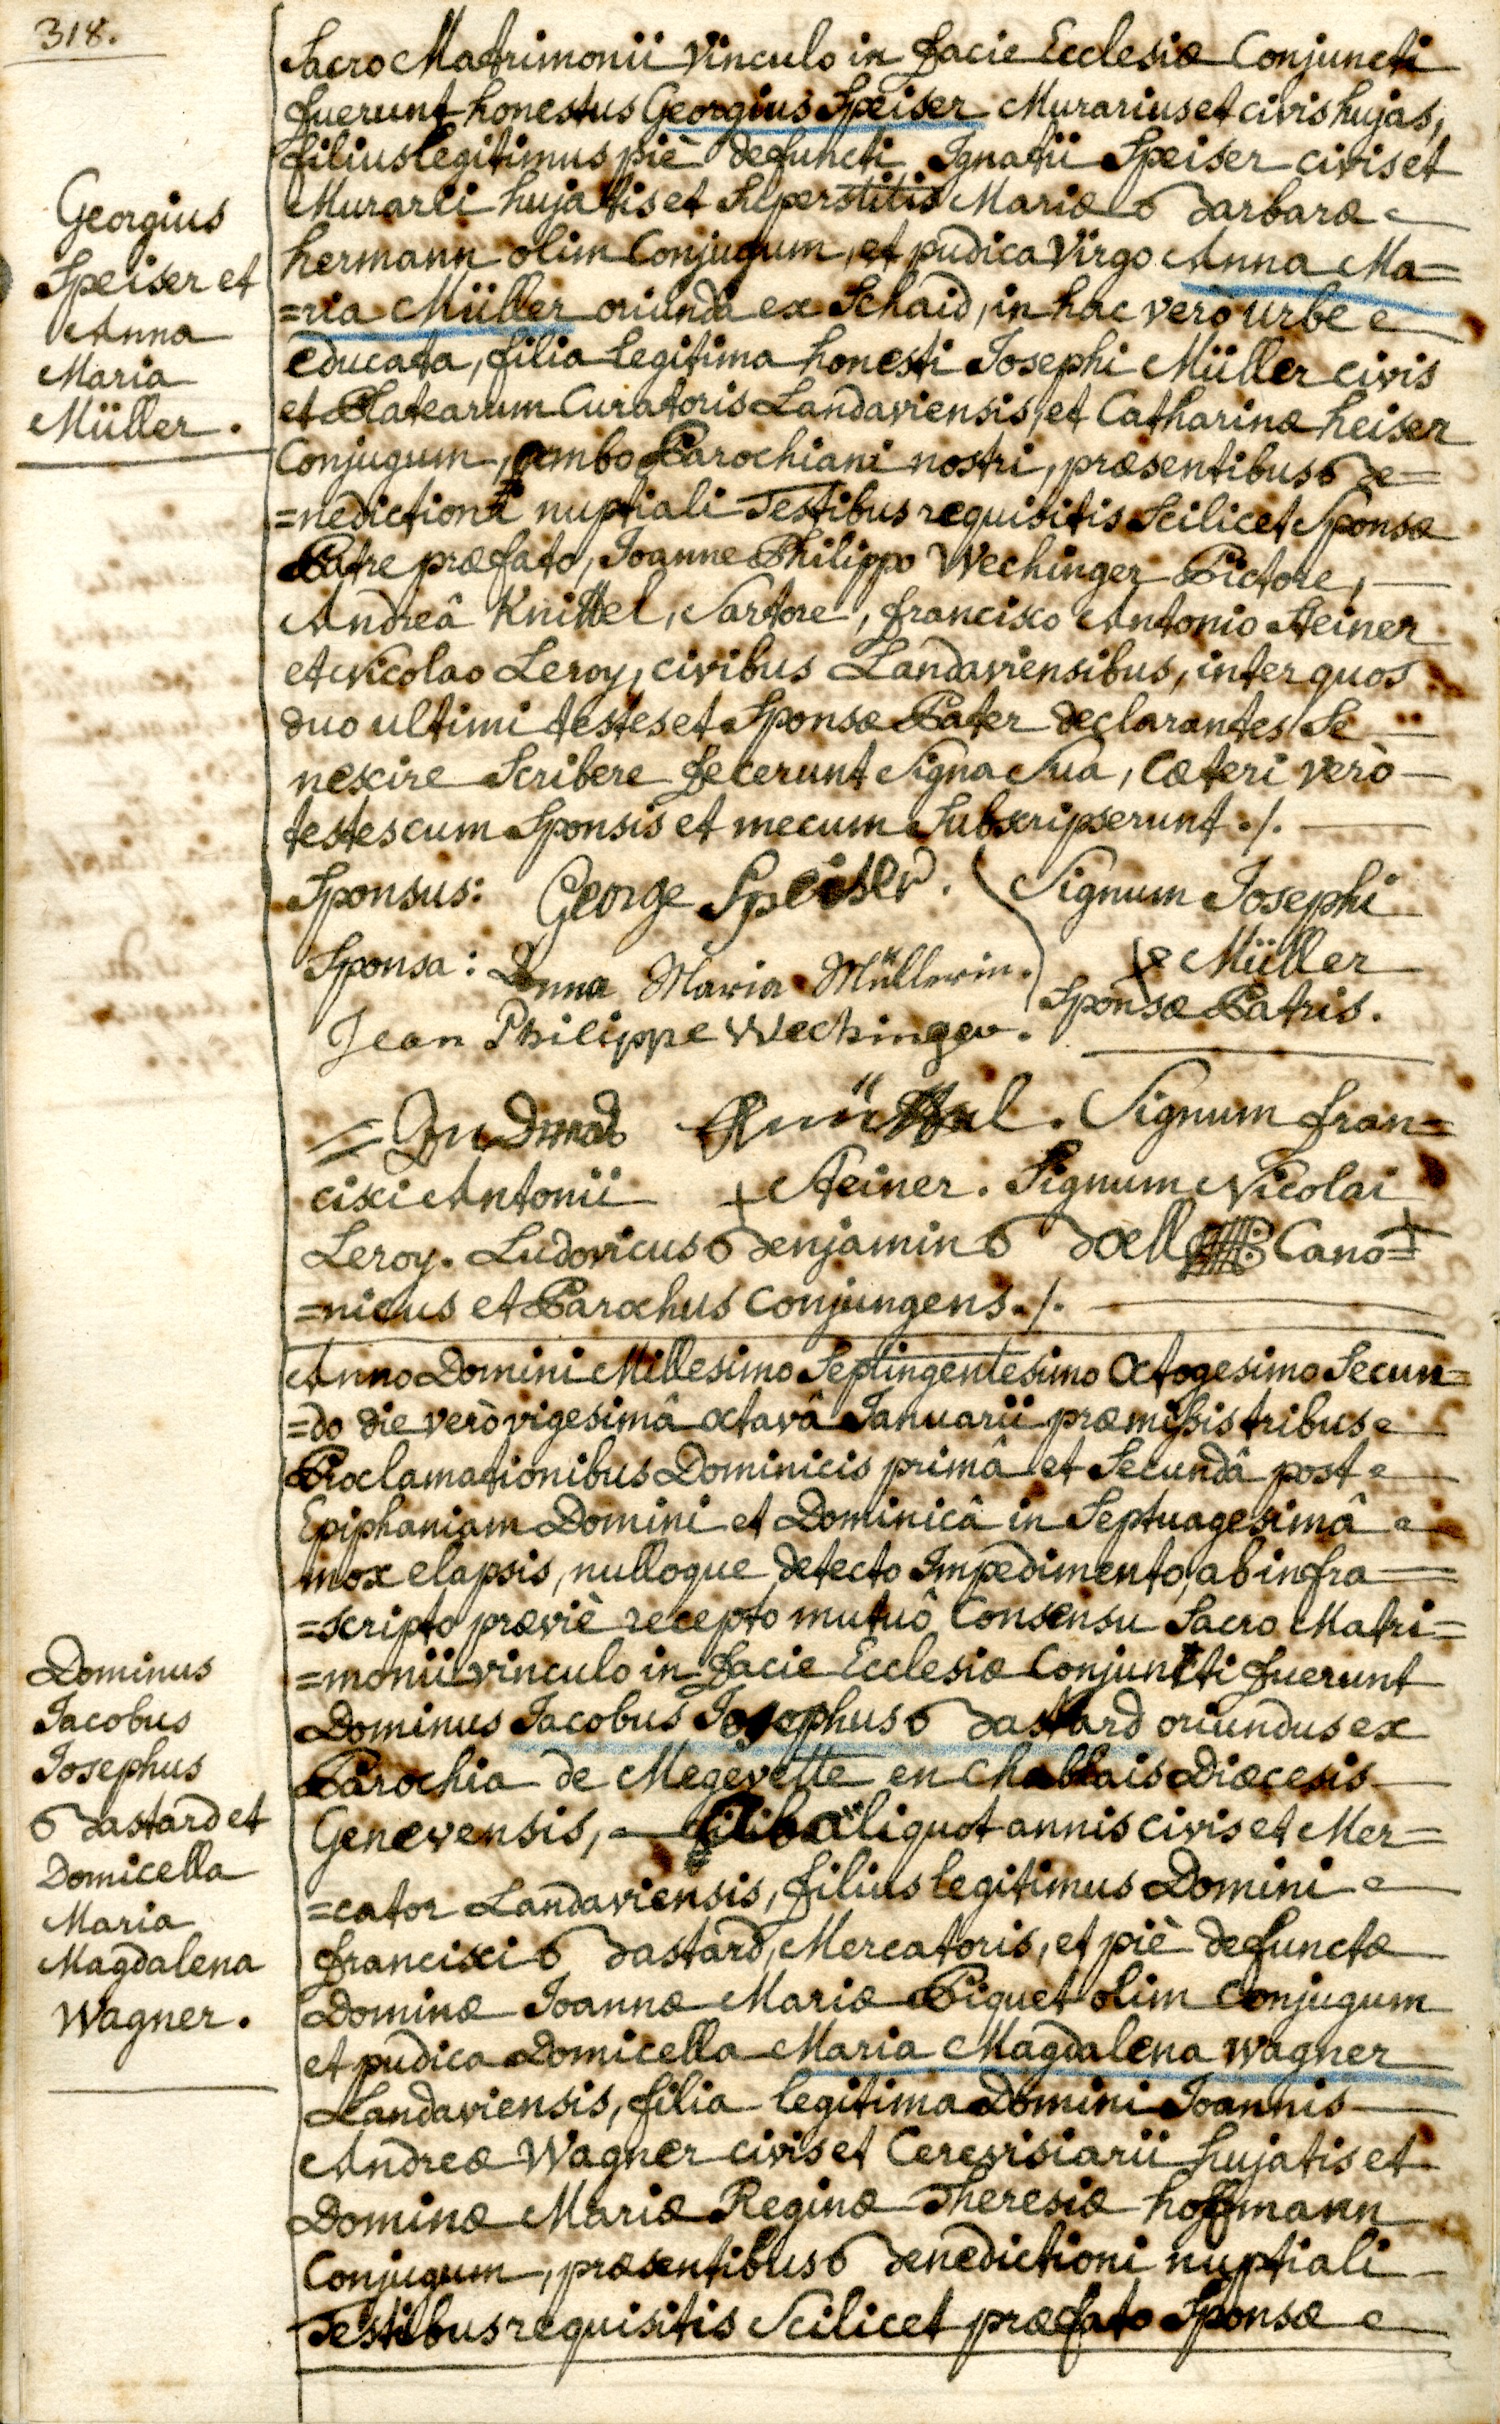 318.
Sacro Matrimonii Vinculo in facie Ecclesiæ Conjuncti
fuerunt honestus Georgius Speiser Murarius et civis hujas,
filius legitimus piè defuncti Ignatii Speiser civis et
Murarii hujatis et Superstitis Mariæ Barbaræ
hermann olim Conjugum, et pudica Virgo Anna Ma=
=ria Müller oriunda ex Schaid, in hac verò urbe
educata, filia legitima honesti Josephi Müller civis
et Platearum Curatoris Landaviensis, et Catharinæ heiser
Conjugum, ambo Parochiani nostri, præsentibus Be=
=nedictioni nuptiali Testibus requisitis Scilicet Sponsæ
Patre præfato, Joanne Philippo Wechinger Pictore,
Andreâ Knittel, Sartore, francisco Antonio Steiner
et Nicolao Leroy, civibus Landaviensibus, inter quos
duo ultimi testes et Sponsæ Pater declarantes Se
nescire Scribere fecerunt Signa Sua, Cæteri verò
testes cum Sponsis et mecum Subscripserunt ./.
Georgius
Speiser et
Anna
Maria
Müller.
Sponsus: George Speiser.
Sponsa: Anna Maria Müllerin.
Jean Philippe Wechinger.
Signum Josephi
Müller
Sponsæ Patris.
= Andreas Knittel. Signum fran=
cisci Antonii + Steiner. Signum Nicolai +
Leroy. Ludovicus Benjamin Boell Cano=
=nicus et Parochus Conjungens ./.
Anno Domini Millesimo Septingentesimo Octogesimo Secun=
=do die verò vigesimâ octavâ Januarii præmissis tribus
Proclamationibus Dominicis primâ et Secundâ post
Epiphaniam Domini et Dominicâ in Septuagesimâ
mox elapsis, nulloque detecto Impedimento, ab infra=
=scripto præviè recepto mutuô Consensu Sacro Matri=
=monii vinculo in facie Ecclesiæ Conjuncti fuerunt
Dominus Jacobus Josephus Bastard oriundus ex
Parochia de Megevette en Chablais Diæcesis
Genevensis, aliquot annis civis et Mer=
=cator Landaviensis, filius legitimus Domini
francisci Bastard, Mercatoris, et piè defunctæ
Dominæ Joannæ Mariæ Piquet olim Conjugum
et pudica Domicella Maria Magdalena Wagner
Landaviensis, filia legitima Domini Joannis
Andreæ Wagner civis et Cerevisiarii hujatis et
Dominæ Mariæ Reginæ Theresiæ hoffmann
Conjugum, præsentibus Benedictioni nuptiali
Testibus requisitis Scilicet præfato Sponsæ
Dominus
Jacobus
Josephus
Bastard et
Domicella
Maria
Magdalena
Wagner.